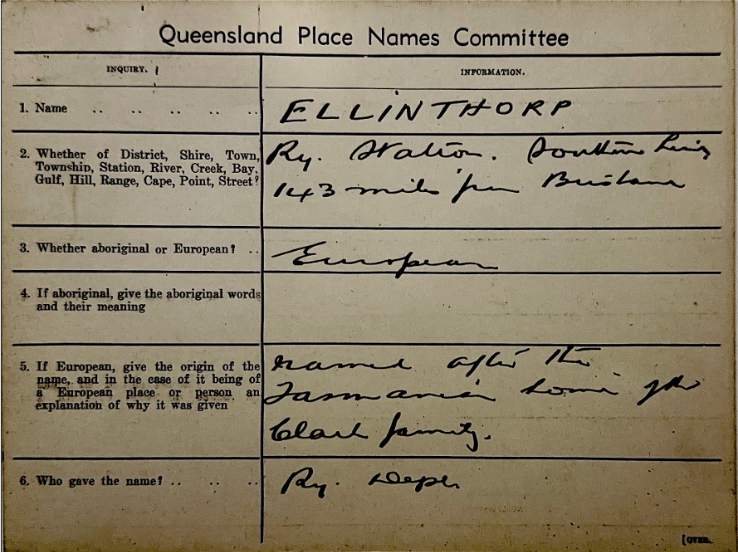 Queensland Place Names Committee
INQUIRY.
INFORMATION.
1. Name .. .. .. .. ..
ELLINTHORP
2. Whether of District, Shire, Town,
Township, Station, River, Creek, Bay,
Gulf, Hill, Range, Cape, Point, Street?
Ry. Station. Southern Line
143 miles from Brisbane
3. Whether aboriginal or European? ..
European
4. If aboriginal, give the aboriginal words
and their meaning
5. If European, give the origin of the
name, and in the case of it being of
a European place or person an
explanation of why it was given
named after the
Tasmanian home of the
Clark family.
6. Who gave the name? .. .. ..
Ry. Dept
[OVER.